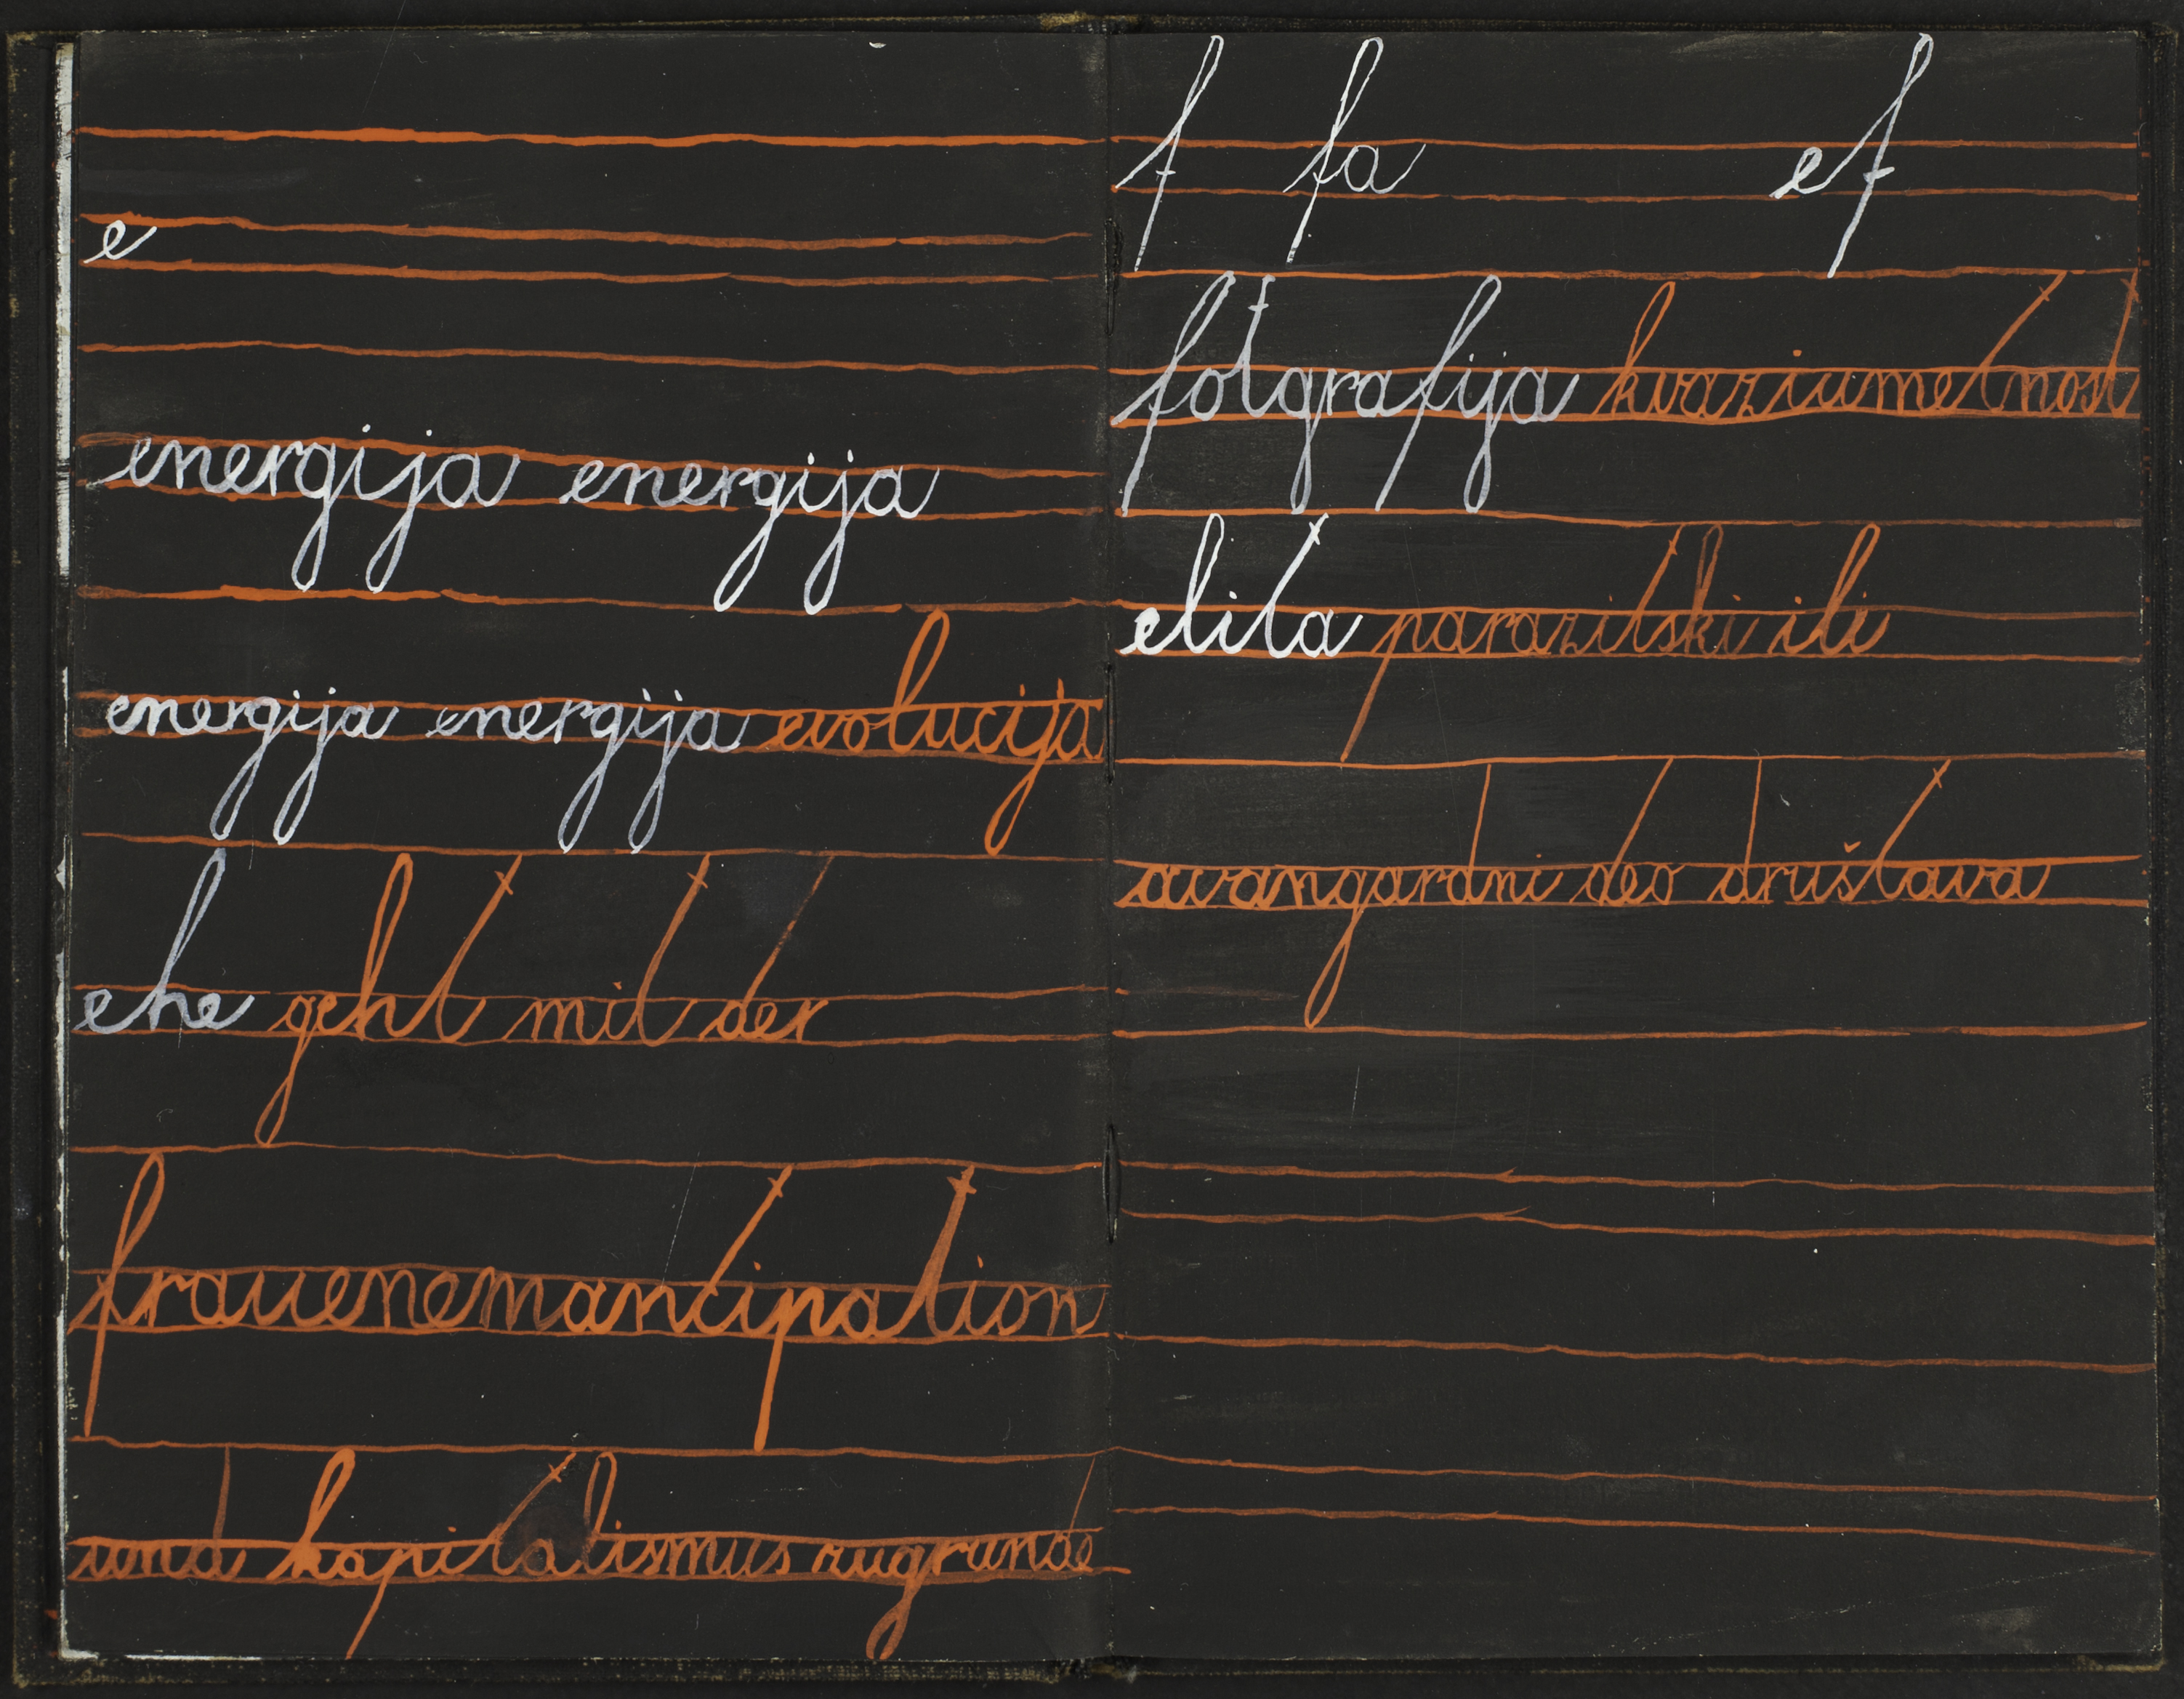 e
energija energija
energija energija evolucija
ehe geht mit der
frauenemantipation
und kapitalismus zugrunde
f fa ef
fotgrafija kvaziumetnost
elita parazitski ili
avangardni deo druśtava